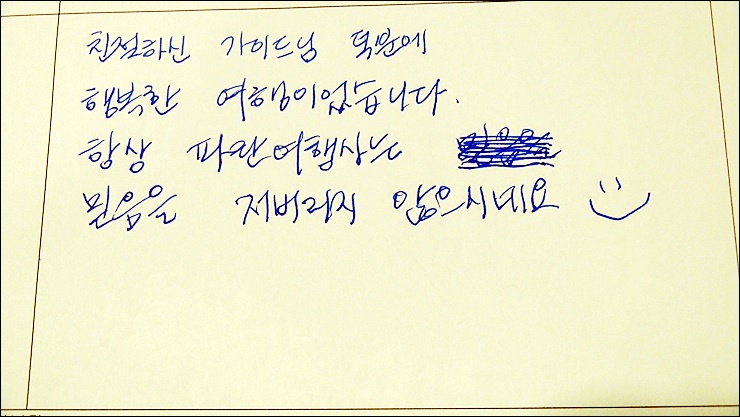 친절하신 가이드님 덕분에
행복한 여행이었습니다.
항상 파란여행사는
믿음을 저버리지 않으시네요